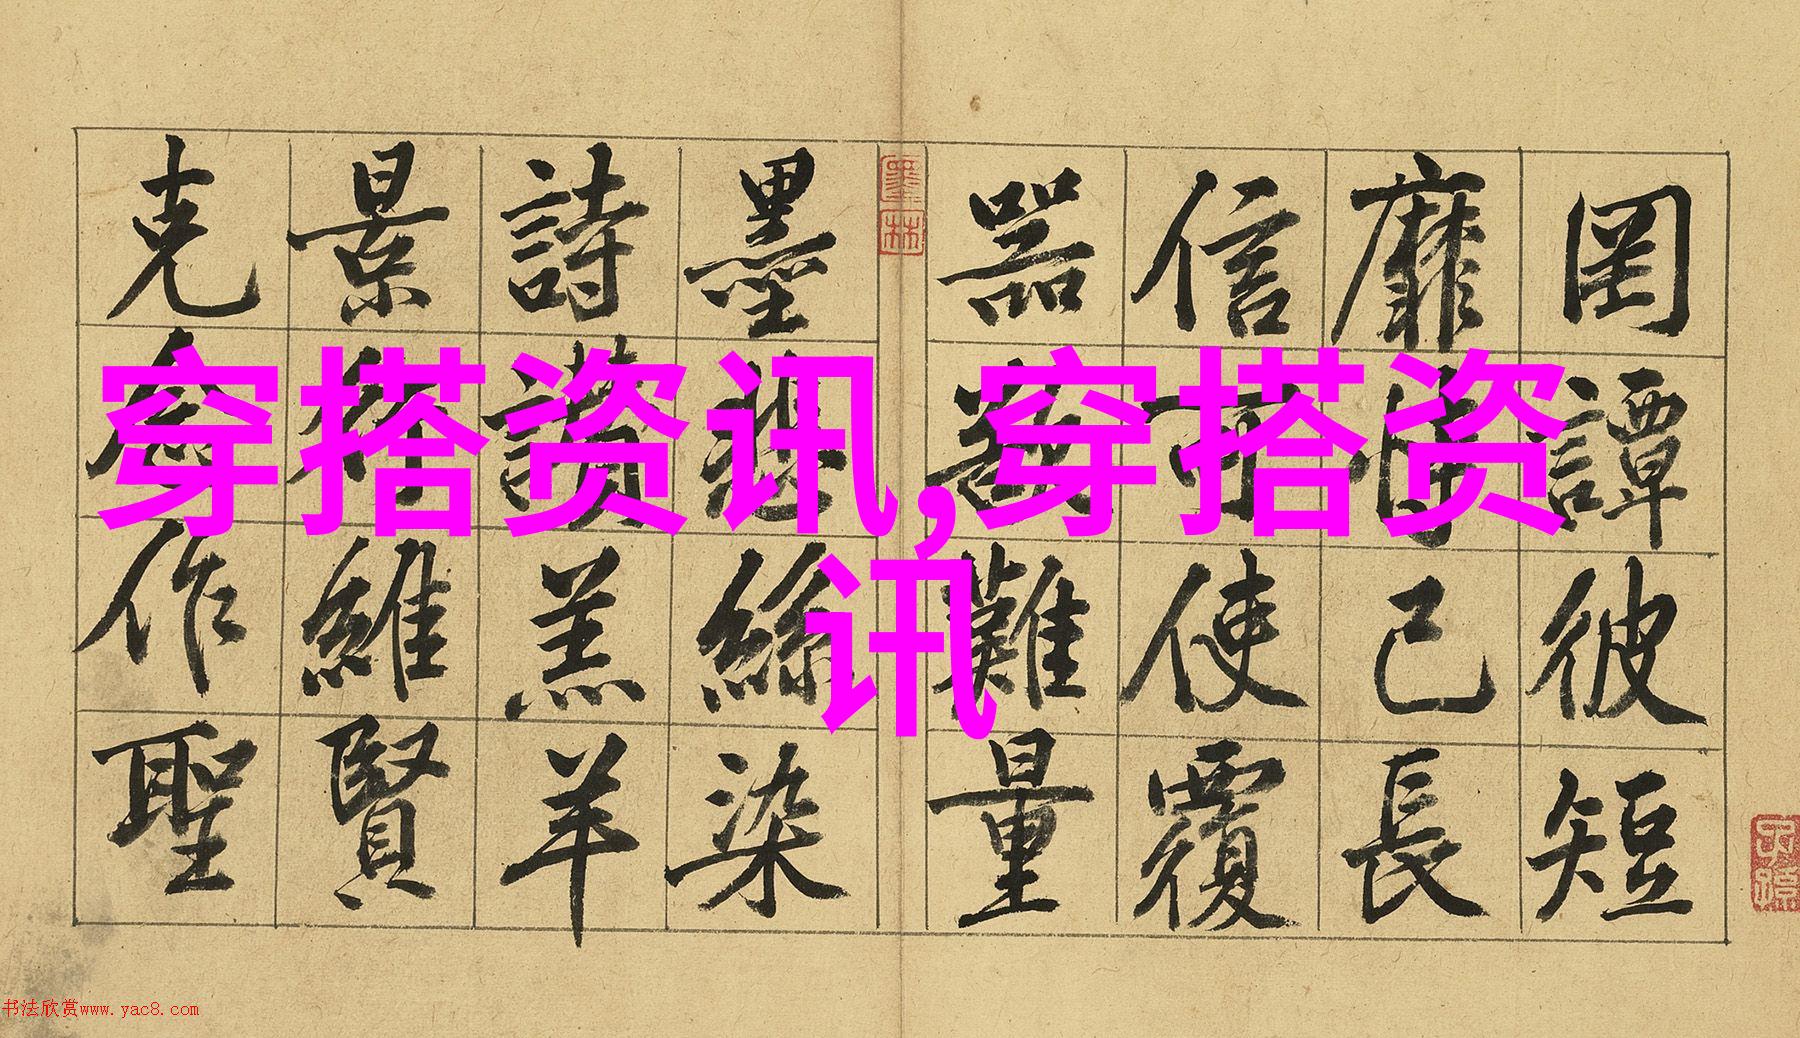 罔譚彼短
靡恃己長
信可使覆
器欲難量
墨悲絲染
詩讚羔羊
景行維賢
克念作聖
穿搭资讯,穿搭资
讯
墨林
书法欣赏www.yac8.com